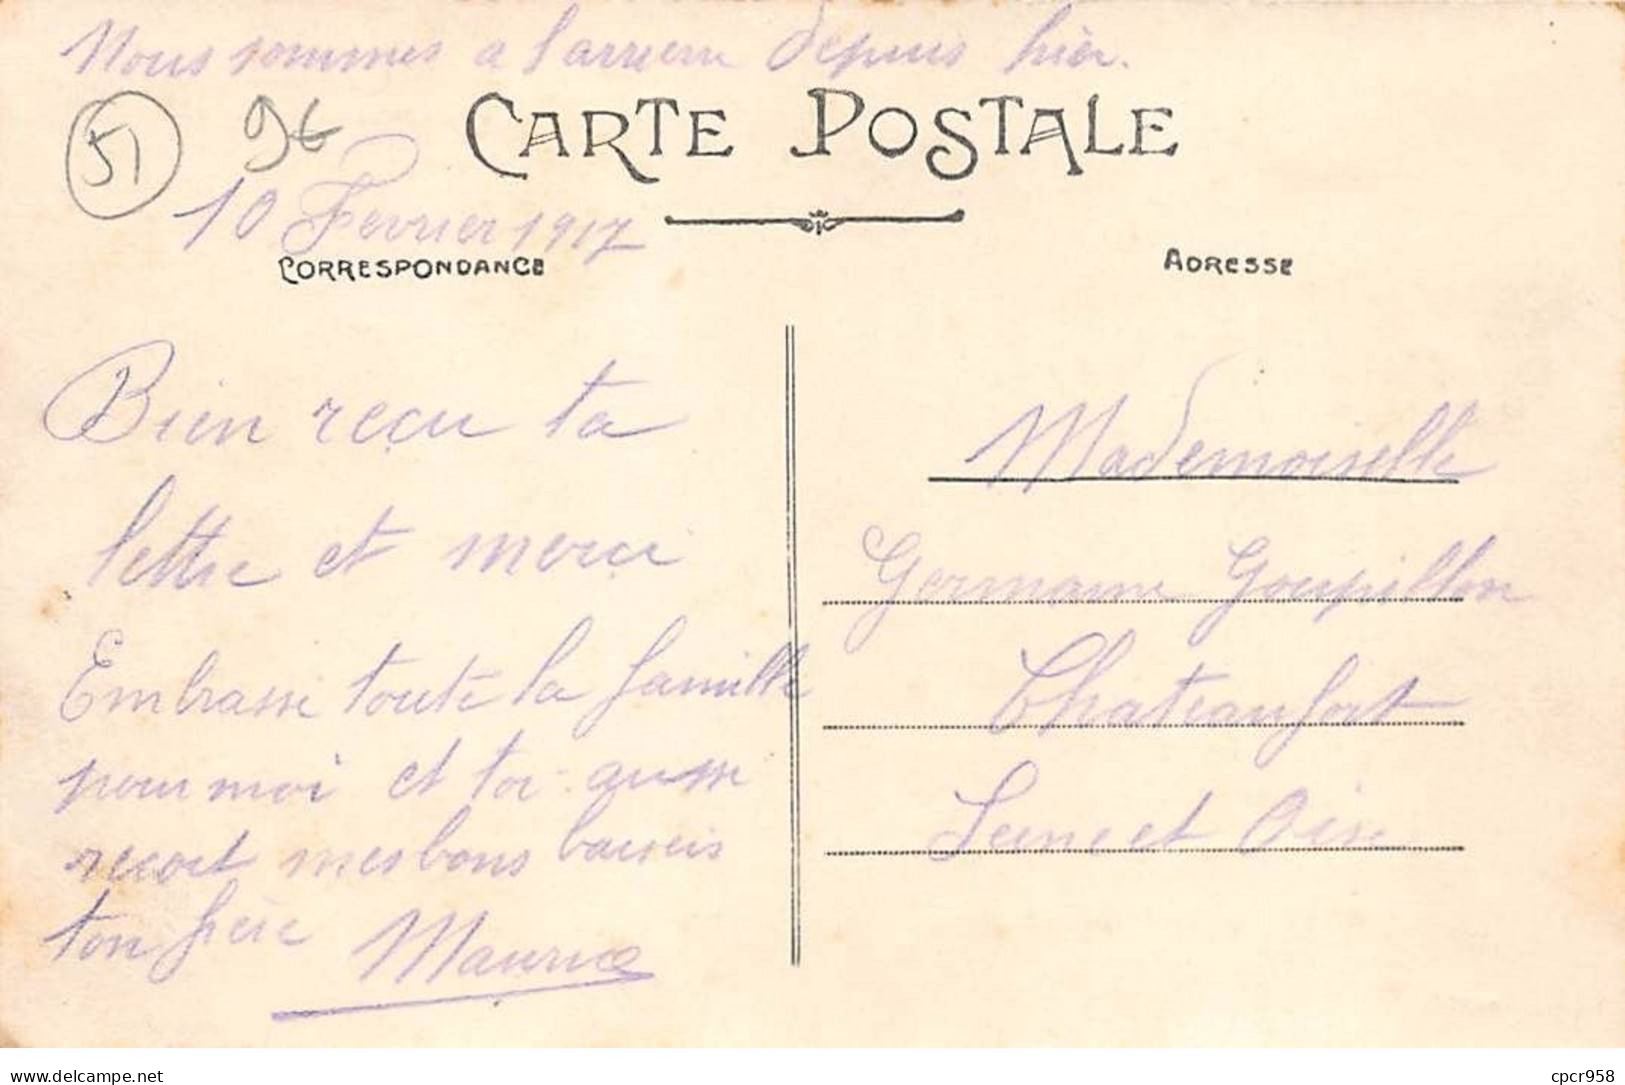 Nous sommes a l'arriere depuis hier.
51 9€
CARTE POSTALE
10 Fevrier 1917
CORRESPONDANCE
ADRESSE
Bien reçu ta
lettre et merci
Embrasse toute la famille
pour moi et toi aussi
recoit mes bons baisers
ton frère Maurice
Mademoiselle
Germaine Goupillon
Chateaufort
Seine et Oise
www.delcampe.net
cpcr958